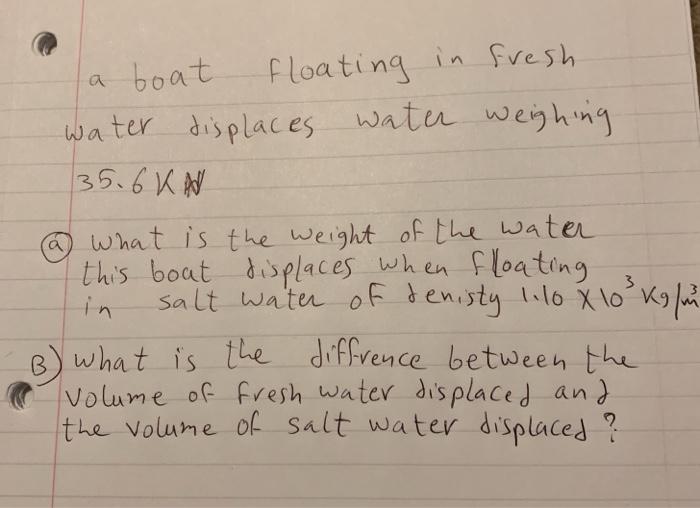 a boat floating in fresh
water displaces water weighing
35.6 KN
(a) what is the weight of the water
this boat displaces when floating
in salt water of denisty 1.10 X10³ Kg/m³
B) what is the diffrence between the
volume of fresh water displaced and
the volume of salt water displaced?